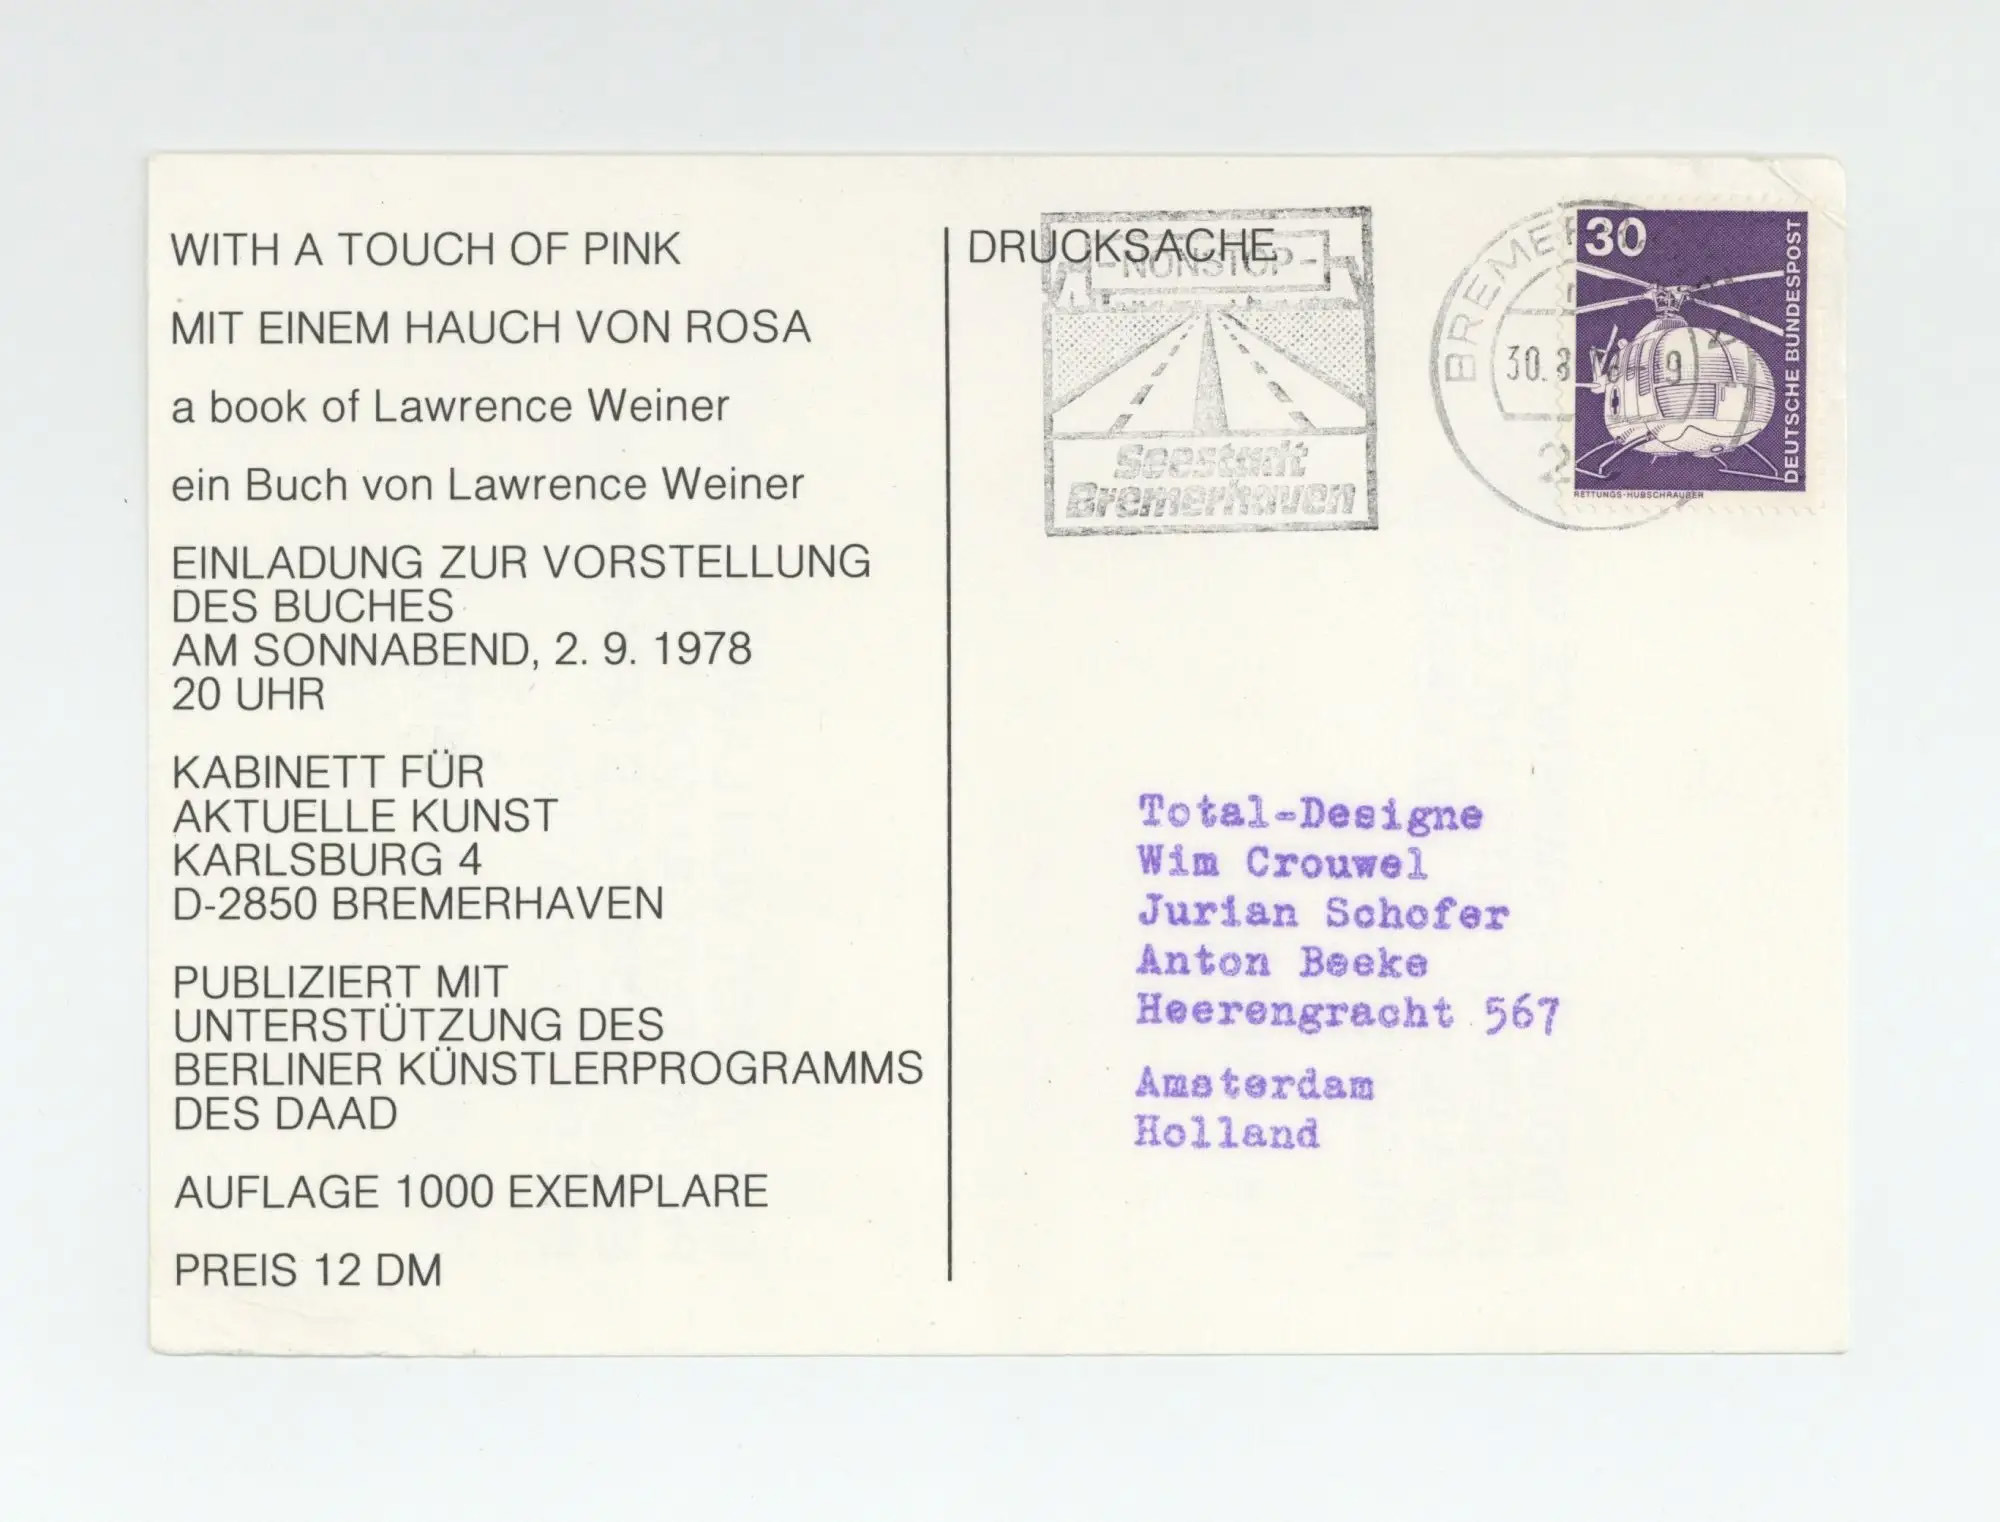 WITH A TOUCH OF PINK
MIT EINEM HAUCH VON ROSA
a book of Lawrence Weiner
ein Buch von Lawrence Weiner
EINLADUNG ZUR VORSTELLUNG
DES BUCHES
AM SONNABEND, 2. 9. 1978
20 UHR
KABINETT FÜR
AKTUELLE KUNST
KARLSBURG 4
D-2850 BREMERHAVEN
PUBLIZIERT MIT
UNTERSTÜTZUNG DES
BERLINER KÜNSTLERPROGRAMMS
DES DAAD
AUFLAGE 1000 EXEMPLARE
PREIS 12 DM
DRUCKSACHE
-NONSTOP-
Seestadt
Bremerhaven
30
DEUTSCHE BUNDESPOST
RETTUNGS-HUBSCHRAUBER
Total-Designe
Wim Crouwel
Jurian Schofer
Anton Beeke
Heerengracht 567
Amsterdam
Holland